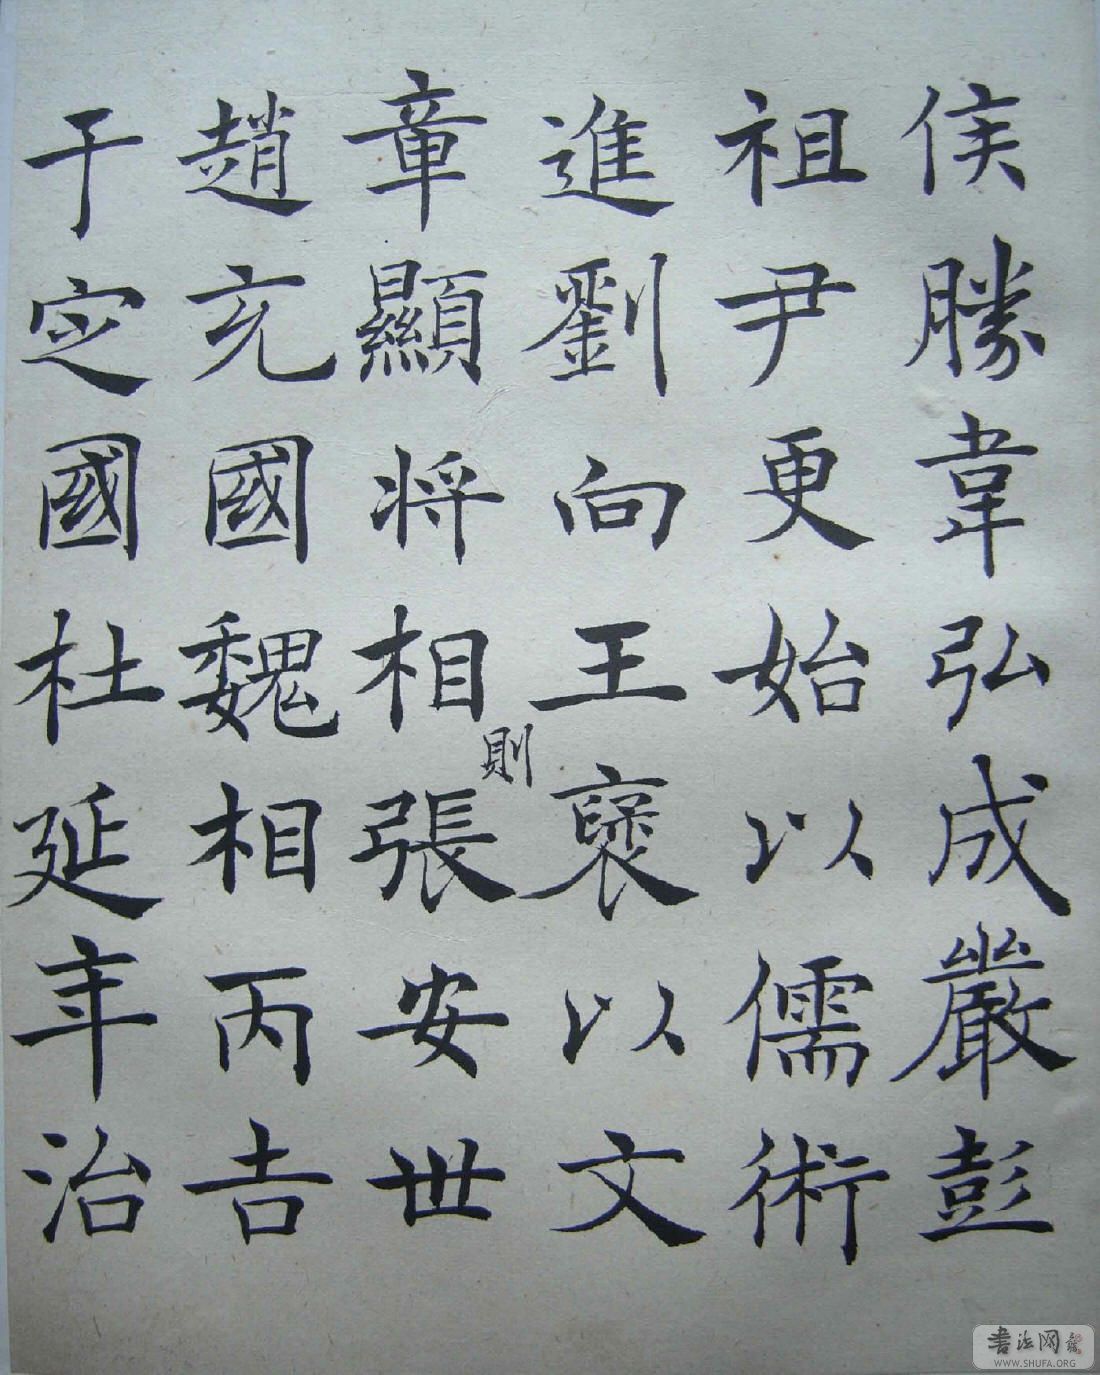 侯勝韋弘成嚴彭
祖尹更始以儒術
進劉向王襃以文
章顯將相則張安世
趙充國魏相丙吉
于定國杜延年治
書法网
WWW.SHUFA.ORG